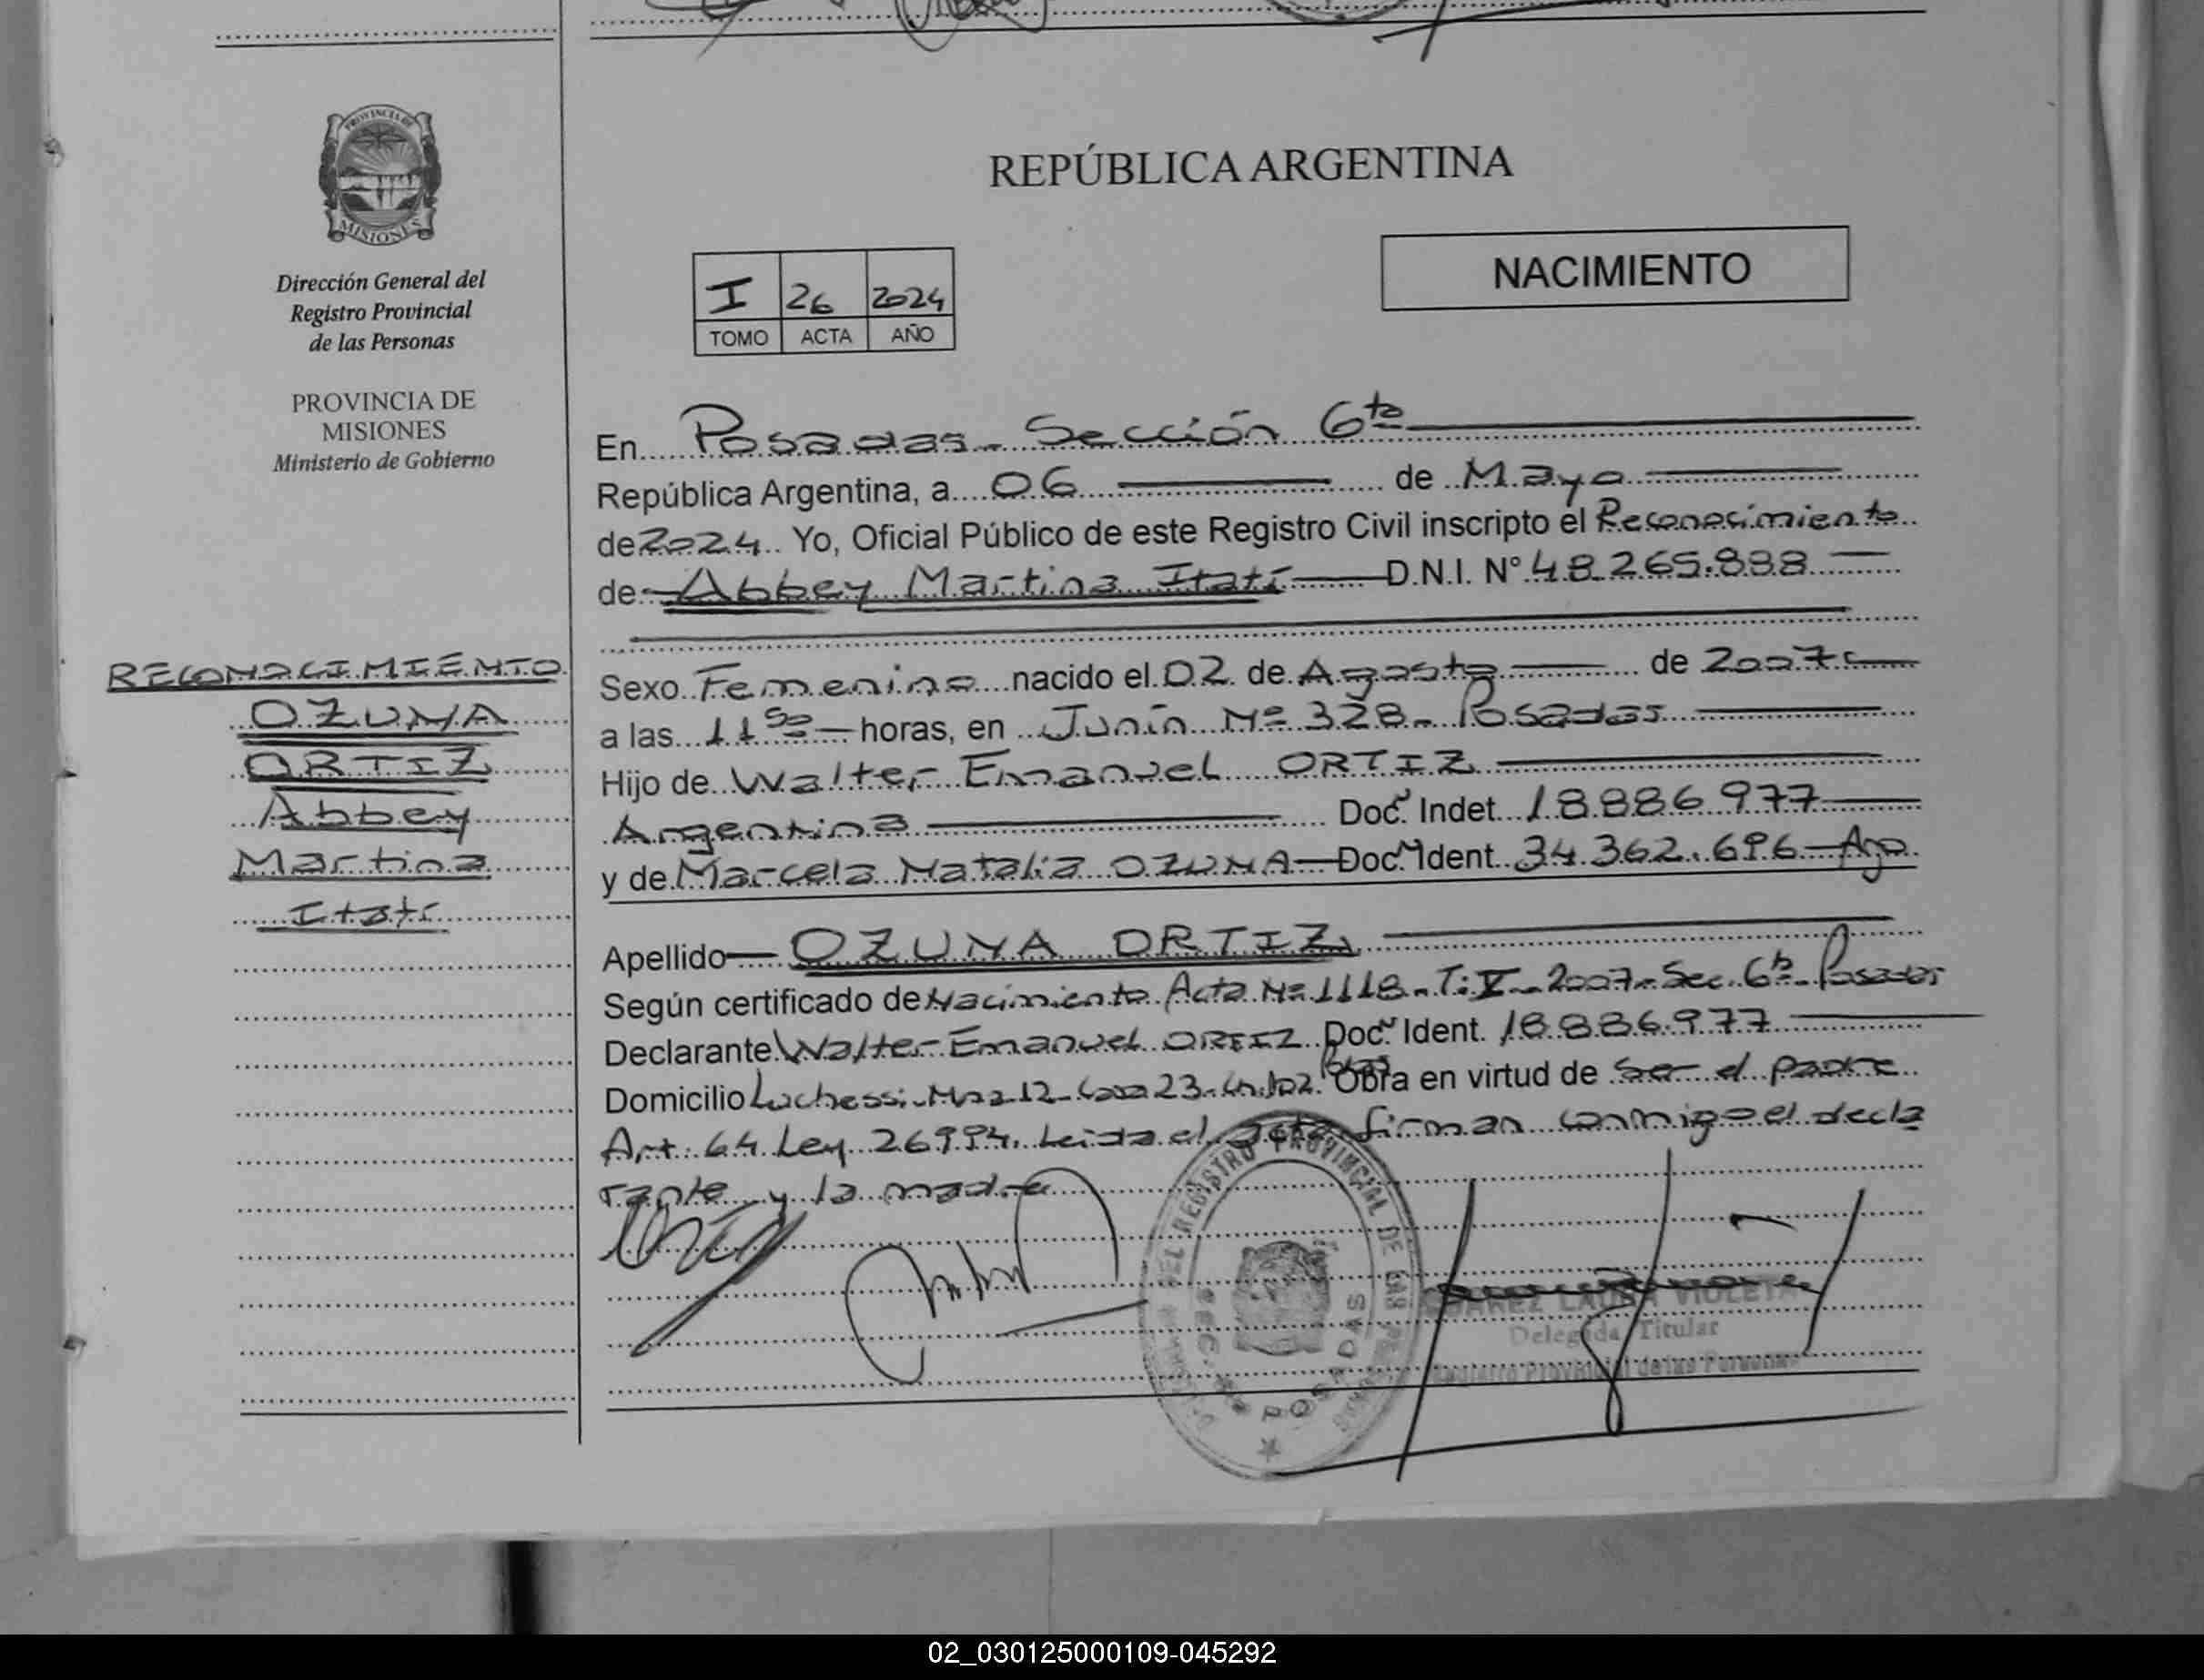 PROVINCIA DE
MISIONES
Dirección General del
Registro Provincial
de las Personas
PROVINCIA DE
MISIONES
Ministerio de Gobierno
RECONOCIMIENTO
OZUNA
ORTIZ
Abbey
Martina
Itatí
REPÚBLICA ARGENTINA
NACIMIENTO
I 26 2024
TOMO ACTA AÑO
En Posadas - Sección 6ta
República Argentina, a 06 de Mayo
de 2024 Yo, Oficial Público de este Registro Civil inscripto el Reconocimiento
de Abbey Martina Itatí D.N.I. N° 48.265.888
Sexo Femenino nacido el 02 de Agosto de 2007
a las 11 50 horas, en Junín Nº 328 - Posadas
Hijo de Walter Emanuel ORTIZ
Argentina Doc. Indet. 18.886.977
y de Marcela Natalia OZUNA Doc. Ident. 34.362.696 - Arg
Apellido OZUNA ORTIZ
Según certificado de Nacimiento Acta Nº 1118 - T: V - 2007 - Sec. 6ta - Posadas
Declarante Walter Emanuel ORTIZ Doc. Ident. 18.886.977
Domicilio Luchessi - Mza 12 - Casa 23 - Obra en virtud de ser el padre
Art. 64 Ley 26994. Leída el acta firman conmigo el decla
rante y la madre
DEL REGISTRO PROVINCIAL DE LAS
SEC. 6ta POSADAS
LAURA VIOLETA
Delegada Titular
Registro Provincial de las Personas
02_030125000109-045292